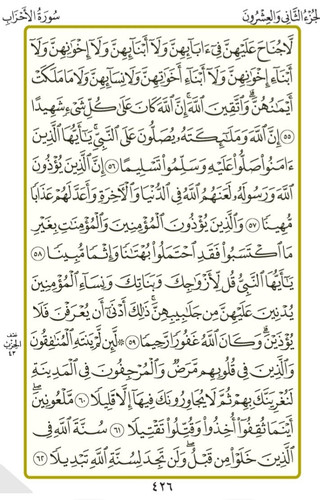 الجزء الثاني والعشرون سورة الأحزاب
لَّا جُنَاحَ عَلَيْهِنَّ فِىٓ ءَابَآئِهِنَّ وَلَآ أَبْنَآئِهِنَّ وَلَآ إِخْوَٰنِهِنَّ وَلَآ
أَبْنَآءِ إِخْوَٰنِهِنَّ وَلَآ أَبْنَآءِ أَخَوَٰتِهِنَّ وَلَا نِسَآئِهِنَّ وَلَا مَا مَلَكَتْ
أَيْمَٰنُهُنَّ ۗ وَٱتَّقِينَ ٱللَّهَ ۚ إِنَّ ٱللَّهَ كَانَ عَلَىٰ كُلِّ شَىْءٍ شَهِيدًا
٥٥ إِنَّ ٱللَّهَ وَمَلَٰٓئِكَتَهُۥ يُصَلُّونَ عَلَى ٱلنَّبِىِّ ۚ يَٰٓأَيُّهَا ٱلَّذِينَ
ءَامَنُوا۟ صَلُّوا۟ عَلَيْهِ وَسَلِّمُوا۟ تَسْلِيمًا ٥٦ إِنَّ ٱلَّذِينَ يُؤْذُونَ
ٱللَّهَ وَرَسُولَهُۥ لَعَنَهُمُ ٱللَّهُ فِى ٱلدُّنْيَا وَٱلْءَاخِرَةِ وَأَعَدَّ لَهُمْ عَذَابًا
مُّهِينًا ٥٧ وَٱلَّذِينَ يُؤْذُونَ ٱلْمُؤْمِنِينَ وَٱلْمُؤْمِنَٰتِ بِغَيْرِ
مَا ٱكْتَسَبُوا۟ فَقَدِ ٱحْتَمَلُوا۟ بُهْتَٰنًا وَإِثْمًا مُّبِينًا
٥٨ يَٰٓأَيُّهَا ٱلنَّبِىُّ قُل لِّأَزْوَٰجِكَ وَبَنَاتِكَ وَنِسَآءِ ٱلْمُؤْمِنِينَ
يُدْنِينَ عَلَيْهِنَّ مِن جَلَٰبِيبِهِنَّ ۚ ذَٰلِكَ أَدْنَىٰٓ أَن يُعْرَفْنَ فَلَا
يُؤْذَيْنَ ۗ وَكَانَ ٱللَّهُ غَفُورًا رَّحِيمًا ٥٩ ۞ لَّئِن لَّمْ يَنتَهِ ٱلْمُنَٰفِقُونَ
نصف
الحزب
٤٣
وَٱلَّذِينَ فِى قُلُوبِهِم مَّرَضٌ وَٱلْمُرْجِفُونَ فِى ٱلْمَدِينَةِ
لَنُغْرِيَنَّكَ بِهِمْ ثُمَّ لَا يُجَاوِرُونَكَ فِيهَآ إِلَّا قَلِيلًا ٦٠ مَّلْعُونِينَ ۖ
أَيْنَمَا ثُقِفُوٓا۟ أُخِذُوا۟ وَقُتِّلُوا۟ تَقْتِيلًا ٦١ سُنَّةَ ٱللَّهِ فِى
ٱلَّذِينَ خَلَوْا۟ مِن قَبْلُ ۖ وَلَن تَجِدَ لِسُنَّةِ ٱللَّهِ تَبْدِيلًا ٦٢
٤٢٦